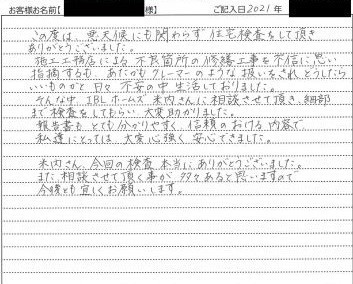 お客様お名前【 様】 ご記入日2021年
この度は、悪天候にも関わらず 住宅検査をして頂き
ありがとうございました。
施工工務店による 不良箇所の修繕工事を不信に思い
指摘するも、あたかもクレーマーのような扱いをされ、どうしたら
いいものかと 日々 不安の中 生活しておりました。
そんな中、IBLホームズ 米内さんに相談させて頂き、細部
まで検査をしてもらい 大変助かりました。
報告書も とても分かりやすく、信頼のおける内容で
私達にとっては、大変心強く 安心できました。
米内さん、今回の検査 本当にありがとうございました。
また 相談させて頂く事が 多々あると思いますので
今後とも宜しくお願いします。